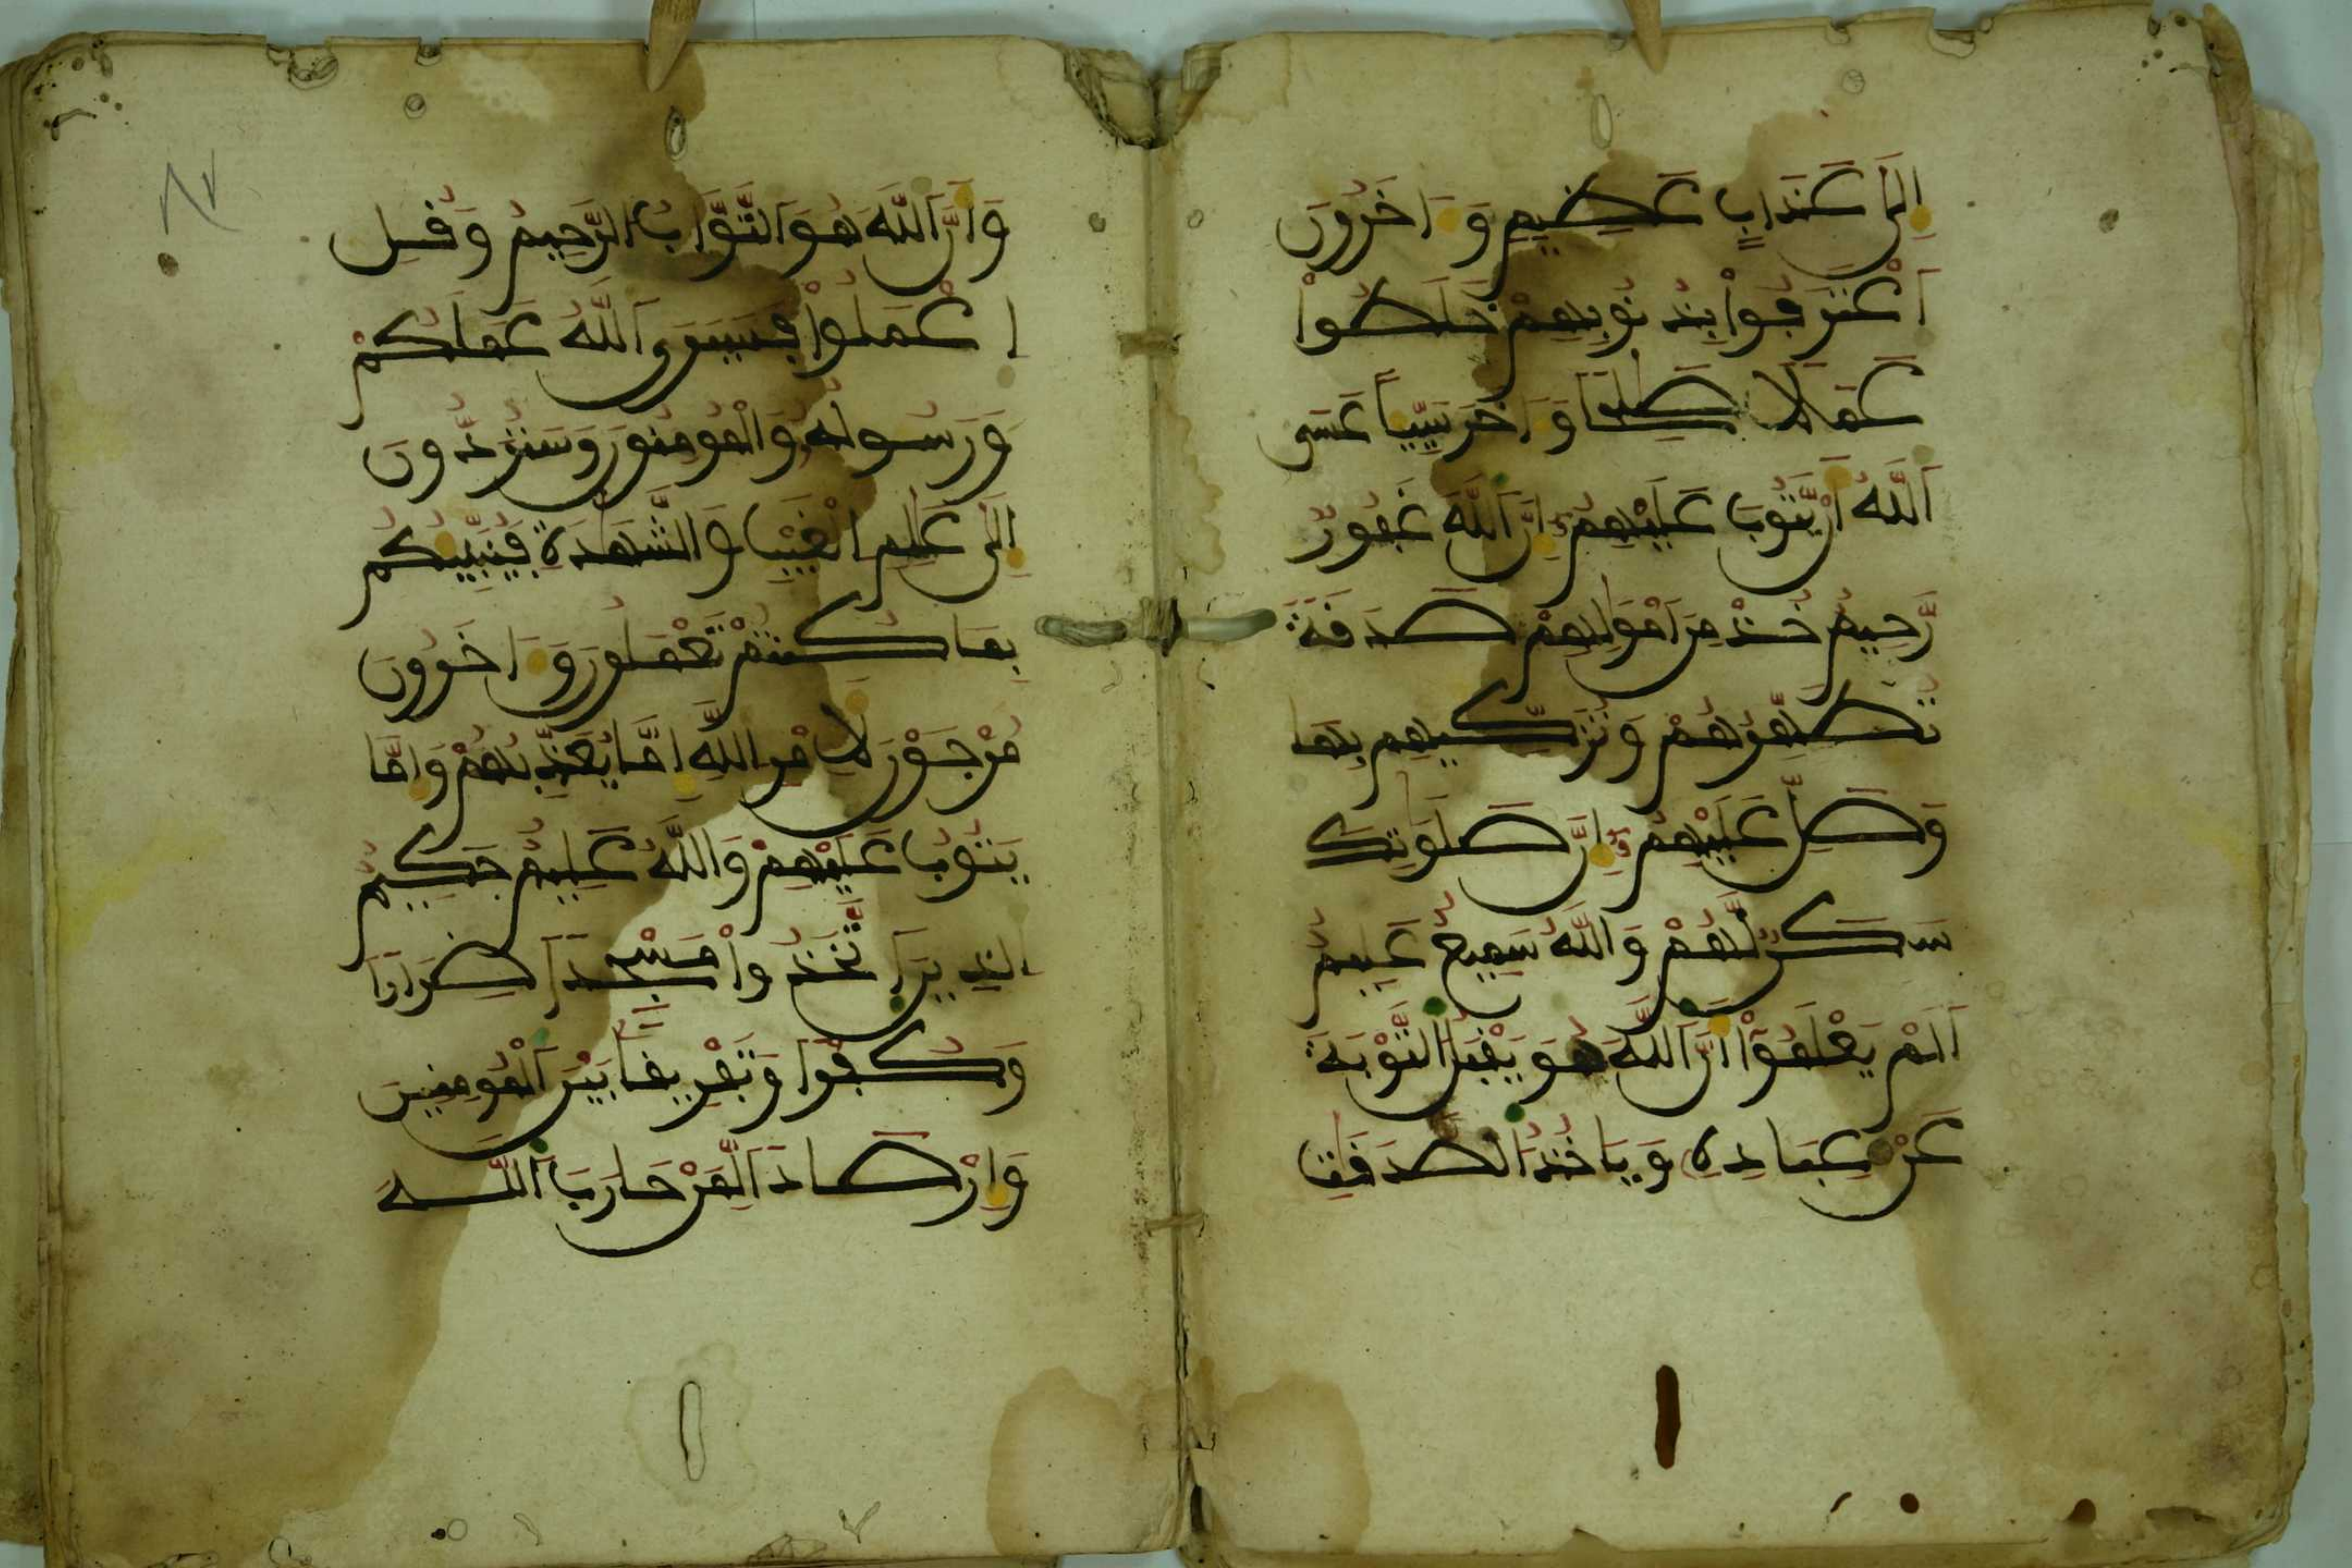 إِلَىٰ عَذَابٍ عَظِيمٍ وَءَاخَرُونَ
اَعْتَرَفُواْ بِذُنُوبِهِمْ خَلَطُواْ
عَمَلًا صَٰلِحًا وَءَاخَرَ سَيِّئًا عَسَى
اَللَّهُ أَنْ يَّتُوبَ عَلَيْهِمُۥٓ إِنَّ اَللَّهَ غَفُورٌ
رَّحِيمٌ خُذْ مِنَ اَمْوَٰلِهِمْ صَدَقَةً
تُطَهِّرُهُمْ وَتُزَكِّيهِم بِهَا
وَصَلِّ عَلَيْهِمُۥٓ إِنَّ صَلَوَٰتِكَ
سَكَنٌ لَّهُمْ وَاللَّهُ سَمِيعٌ عَلِيمٌ
اَلَمْ يَعْلَمُوٓاْ أَنَّ اَللَّهَ هُوَ يَقْبَلُ اُلتَّوْبَةَ
عَنْ عِبَادِهِۦ وَيَاخُذُ اُلصَّدَقَٰتِ
وَأَنَّ اَللَّهَ هُوَ اَلتَّوَّابُ اُلرَّحِيمُ وَقُلِ
اِعْمَلُواْ فَسَيَرَى اَللَّهُ عَمَلَكُمْ
وَرَسُولُهُۥ وَالْمُومِنُونَ وَسَتُرَدُّونَ
إِلَىٰ عَٰلِمِ اِلْغَيْبِ وَالشَّهَٰدَةِ فَيُنَبِّئُكُم
بِمَا كُنتُمْ تَعْمَلُونَ وَءَاخَرُونَ
مُرْجَوْنَ لِأَمْرِ اِللَّهِ إِمَّا يُعَذِّبُهُمْ وَإِمَّا
يَتُوبُ عَلَيْهِمْ وَاللَّهُ عَلِيمٌ حَكِيمٌ
اُلذِينَ اَتَّخَذُواْ مَسْجِدًا ضِرَارًا
وَكُفْرًا وَتَفْرِيقًا بَيْنَ اَلْمُومِنِينَ
وَإِرْصَادًا لِّمَنْ حَارَبَ اَللَّهَ